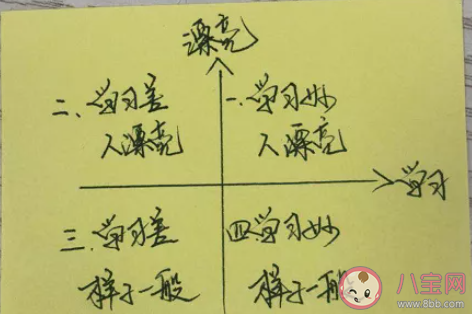 漂亮
二、学习差
人漂亮
一、学习妙
人漂亮
学习
三、学习差
样子一般
四学习妙
样子一般
八宝网
www.8bb.com